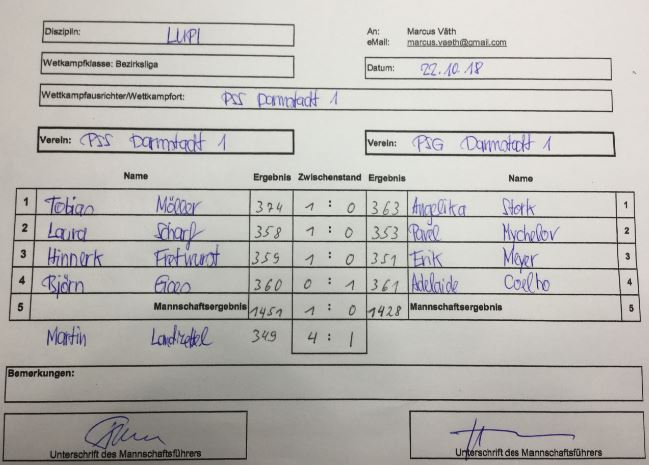 Disziplin: LUPI
An: Marcus Väth
eMail: marcus.vaeth@gmail.com
Wetkampfklasse: Bezirksliga
Datum: 22.10.18
Wettkampfausrichter/Wettkampfort: PSS Darmstadt 1
Verein: PSS Darmstadt 1 Verein: PSG Darmstadt 1
Name Ergebnis Zwischenstand Ergebnis Name
1 Tobias Möller 374 1 : 0 363 Angelika Stork 1
2 Laura Scharf 358 1 : 0 353 Pavel Mychelov 2
3 Hinnerk Fretwurst 359 1 : 0 351 Erik Meyer 3
4 Björn 360 0 : 1 361 Adelaide Coelho 4
5 Mannschaftsergebnis 1451 1 : 0 1428 Mannschaftsergebnis 5
Martin 349 4 : 1
Bemerkungen:
Unterschrift des Mannschaftsführers Unterschrift des Mannschaftsführers